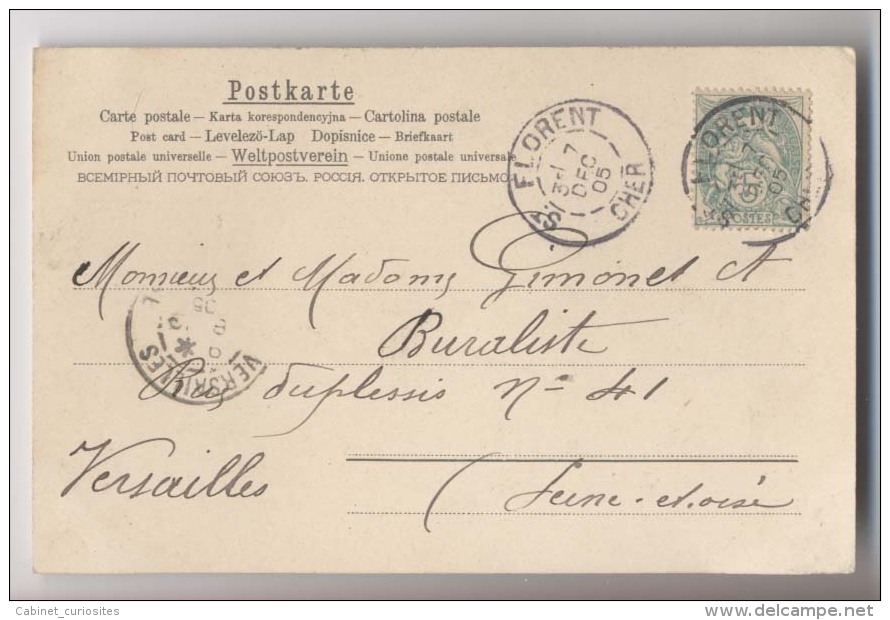 Postkarte
Carte postale — Karta korespondencyjna — Cartolina postale
Post card — Levelezö-Lap Dopisnice — Briefkaart
Union postale universelle — Weltpostverein — Unione postale universale
ВСЕМІРНЫЙ ПОЧТОВЫЙ СОЮЗЪ. РОССІЯ. ОТКРЫТОЕ ПИСЬМО
ST FLORENT
7
DEC
05
CHER
ST FLORENT
7
DEC
05
POSTES
Monsieur et Madame Gimonet A
Buraliste
VERSAILLES
Rue duplessis N° 41
Versailles
Seine-et-oise
Cabinet_curiosites
delcampe.net